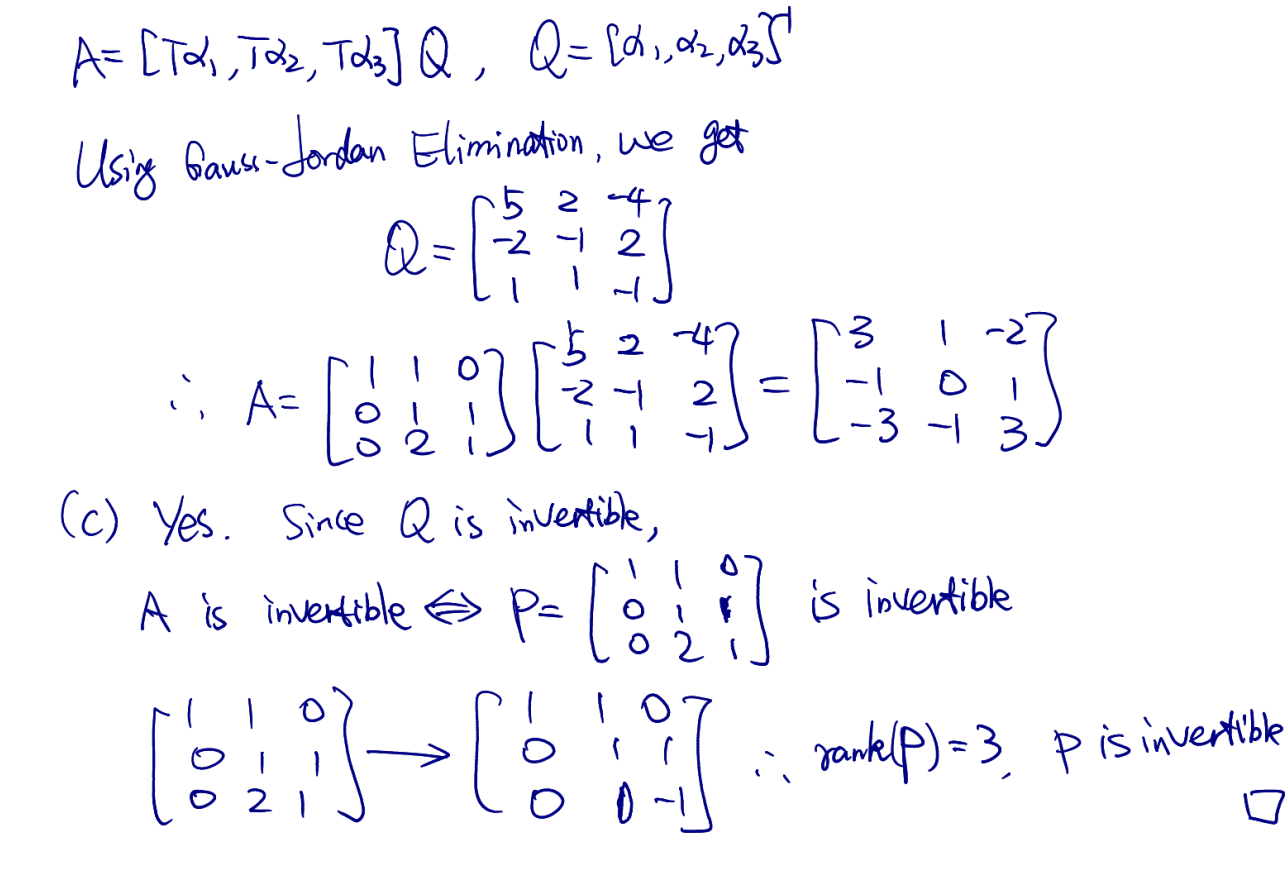 A= [Tα₁, Tα₂, Tα₃] Q , Q= [α₁, α₂, α₃]⁻¹
Using Gauss-Jordan Elimination, we get
Q= [5 2 -4; -2 -1 2; 1 1 -1]
∴ A= [1 1 0; 0 1 1; 0 2 1] [5 2 -4; -2 -1 2; 1 1 -1] = [3 1 -2; -1 0 1; -3 -1 3]
(c) Yes. Since Q is invertible,
A is invertible ⇔ P= [1 1 0; 0 1 1; 0 2 1] is invertible
[1 1 0; 0 1 1; 0 2 1] → [1 1 0; 0 1 1; 0 0 -1] ∴ rank(P)=3, P is invertible
□